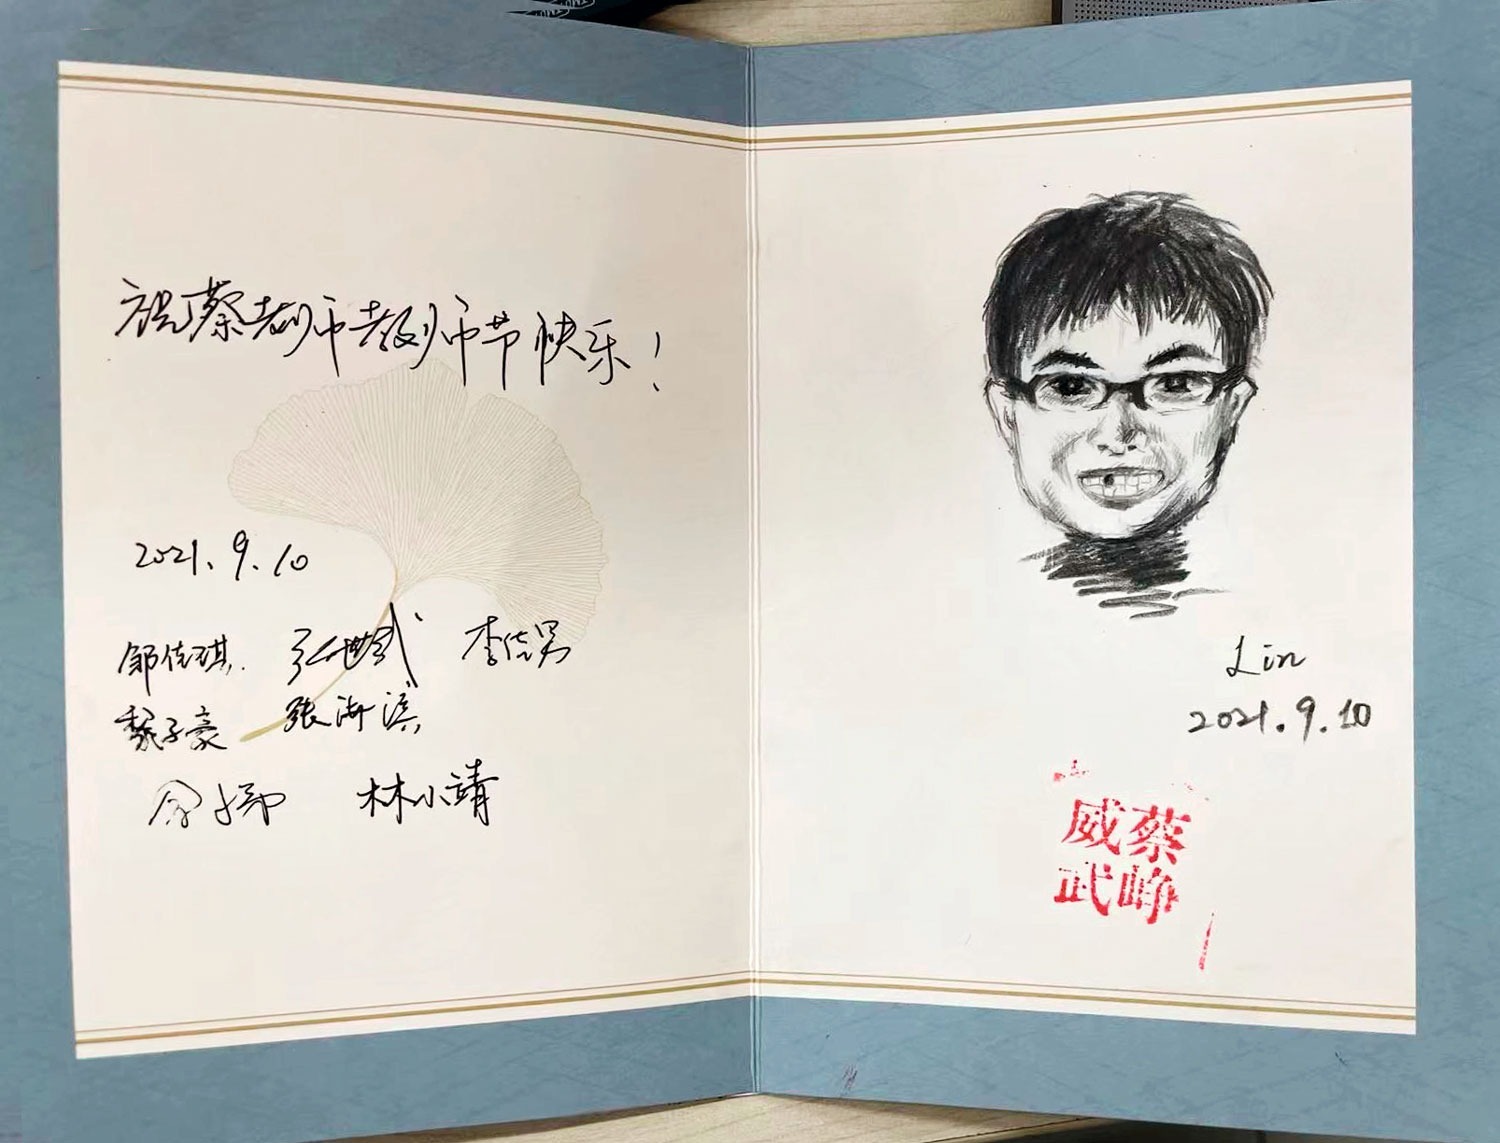 祝蔡老师教师节快乐！
2021.9.10
邹佳琪 张世武 李佳男
魏子豪 张海滨
林小靖
Lin
2021.9.10
威蔡
武峥